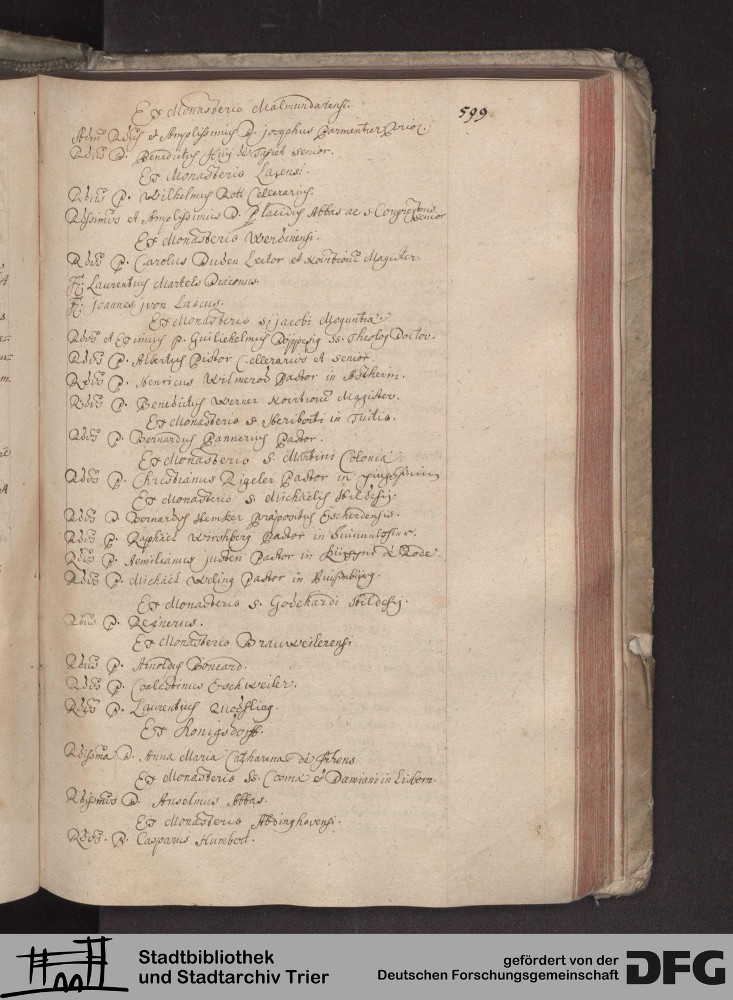 599
Ex Monasterio Malmundariensi
Adm Rdus et Amplissimus D. Josephus Parmentier Prior.
Rdus D. Benedictus de senior.
Ex Monasterio Lacensi.
Rdus P. Wilhelmus Rott Cellerarius.
Rdissimus et Amplissimus D. Placidus Abbas ac s Congregtnis senior
Ex Monasterio Werdinensi.
Rdus P. Carolus Duden Lector et Novitioru Magister.
Fr: Laurentius Martels Diaconus.
Fr: Joannes von Lascus.
Ex Monasterio S: Jacobi Moguntiæ.
Rdus et Eximius P. Guilielhelmus SS. Theolog Doctor.
Rdus P. Albertus Pistor Cellerarius et senior.
Rdus P. Henricus Wilmerod Pastor in Astheim.
Rdus P. Benedictus Werner Novitioru Magister.
Ex Monasterio S Heriberti in Tuitio.
Rdus P. Bernardus Pannerius Pastor.
Ex Monasterio S. Martini Coloniæ.
Rdus P. Christianus Rigeler Pastor in
Ex Monasterio S. Michaelis Hildesij.
Rdus P. Bernardus Hemker Præpositus Escherdensis.
Rdus P. Raphael Wirshberg Pastor in
Rdus P. Aemilianus Justen Pastor in de Rode.
Rdus P. Michael Weling Pastor in
Ex Monasterio S. Godehardi Hildesij.
Rdus P. Reinerus.
Ex Monasterio Brauweilerensi
Rdus P. Arnoldus Boncard.
Rdus P. Coelestinus Eschweiler.
Rdus P. Laurentius
Ex Konigsdorff.
Rdissima D. Anna Maria Catharina de
Ex Monasterio SS. Cosmæ et Damiani in Lisborn.
Rdissimus D. Anselmus Abbas.
Ex Monasterio Abdinghovensi.
Rdus. P. Casparus Humbert.
Stadtbibliothek
und Stadtarchiv Trier
gefördert von der
Deutschen Forschungsgemeinschaft
DFG